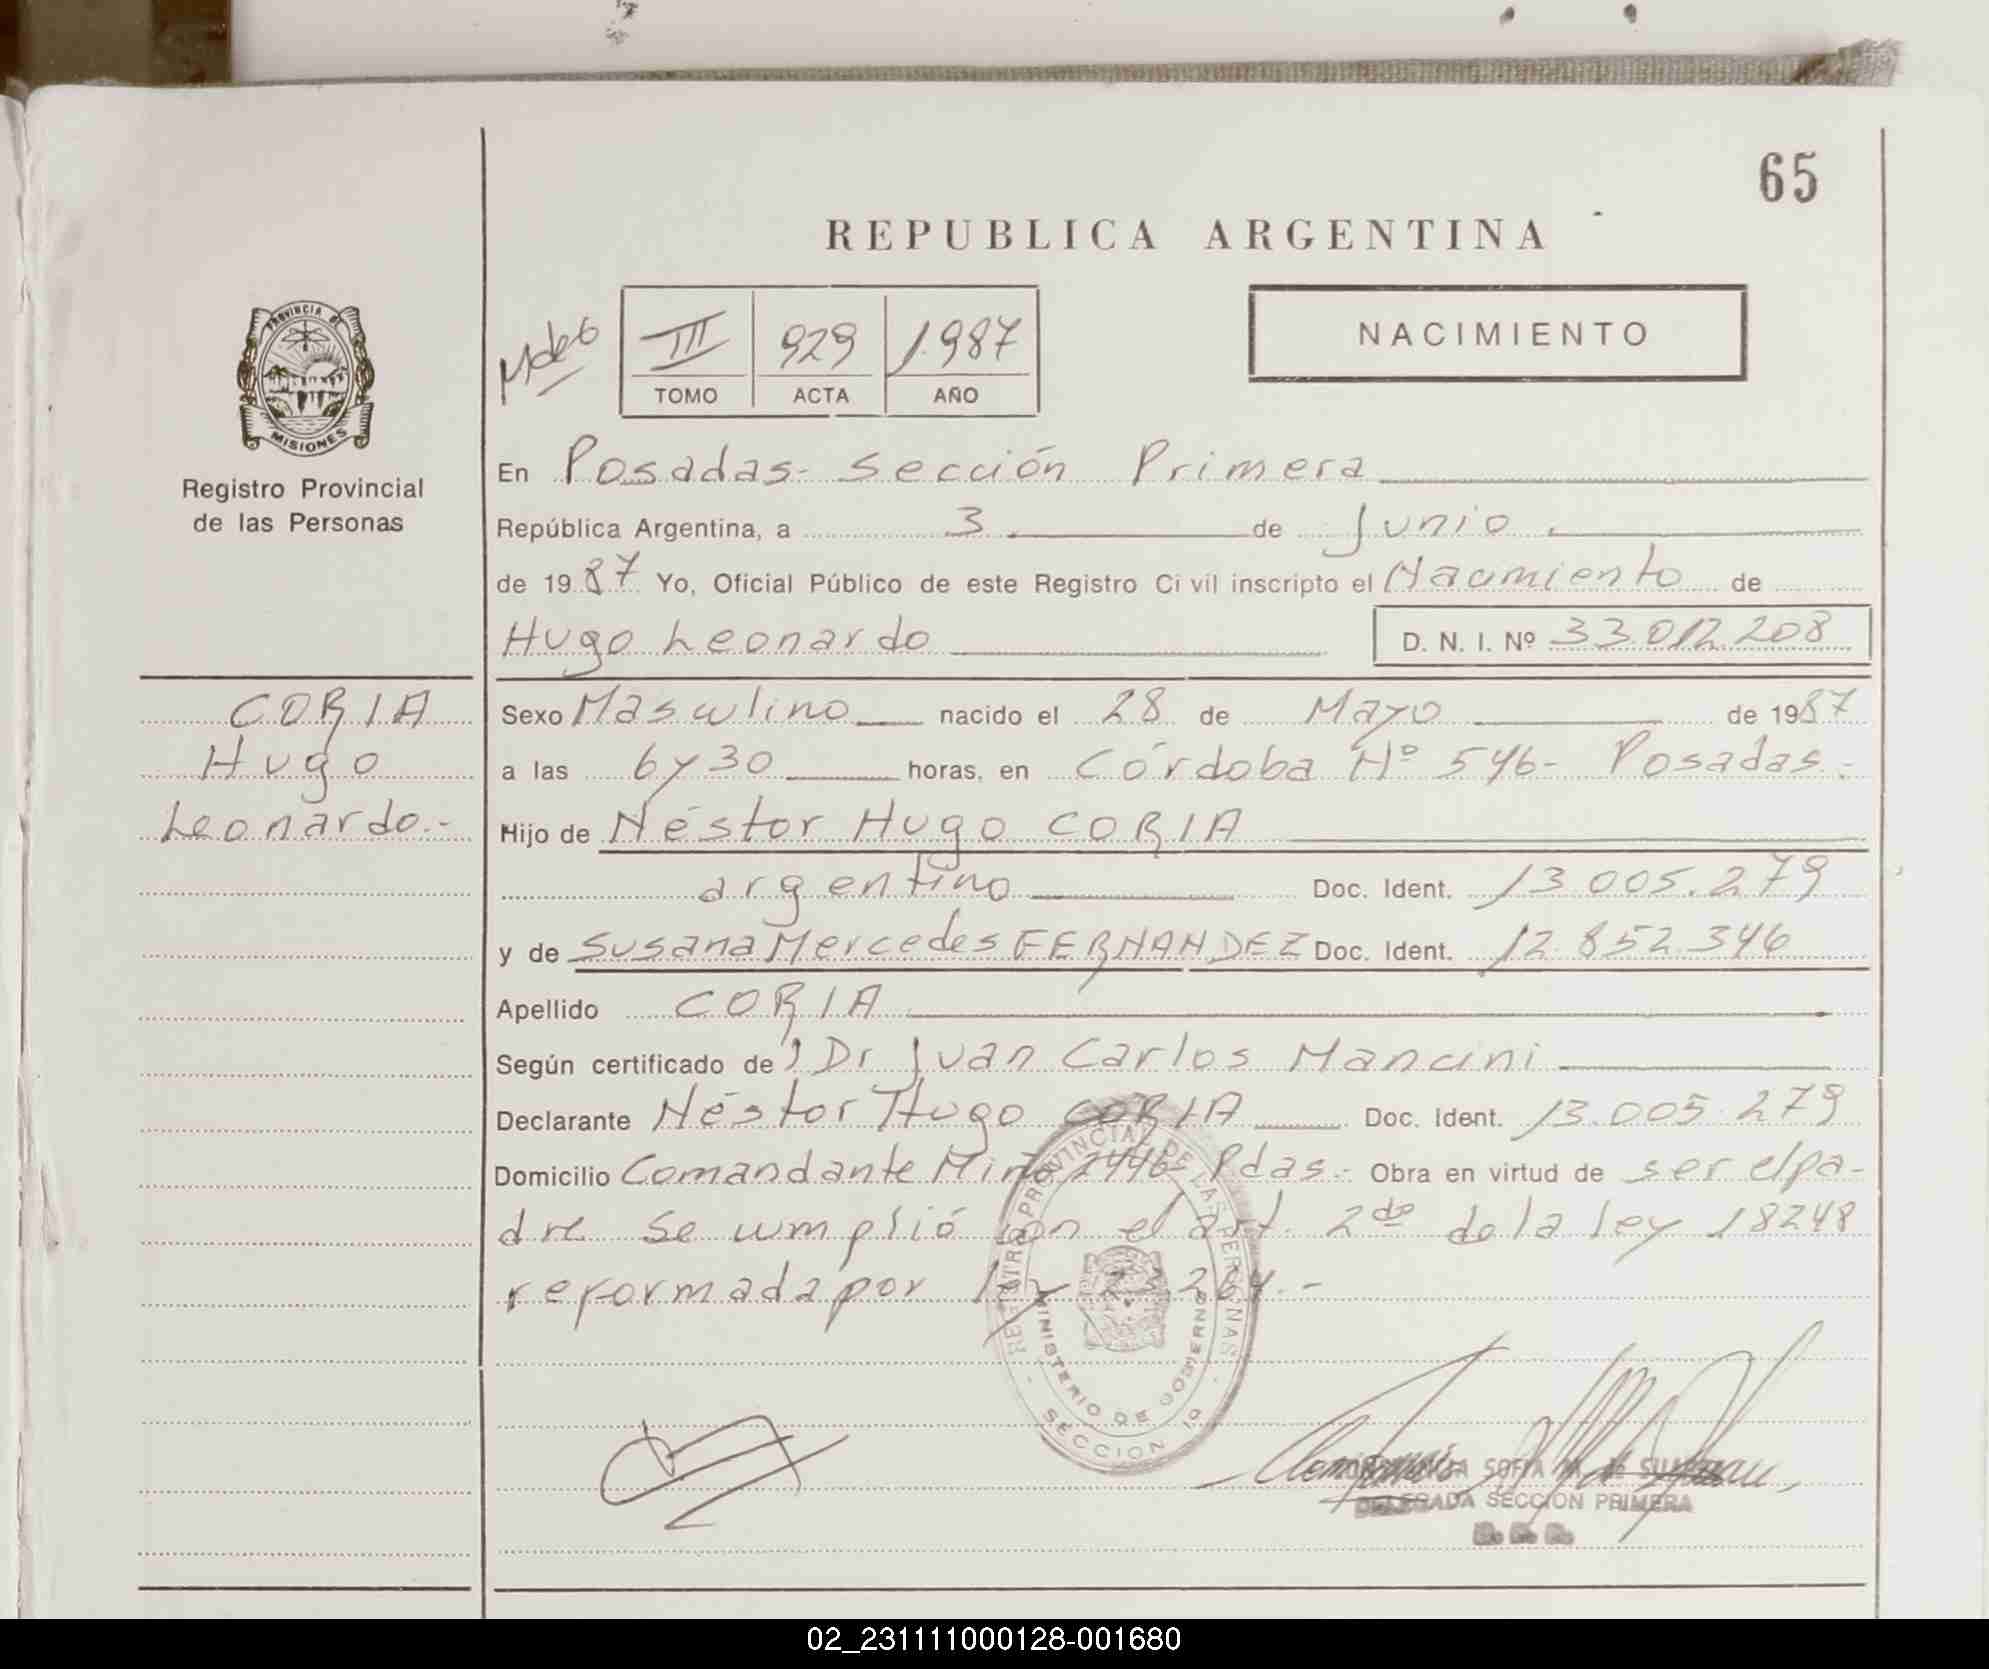 65
REPUBLICA ARGENTINA
III 929 1987
TOMO ACTA AÑO
NACIMIENTO
PROVINCIA DE
MISIONES
Registro Provincial
de las Personas
CORIA
Hugo
Leonardo.-
En Posadas- Sección Primera
República Argentina, a 3 de Junio
de 1987 Yo, Oficial Público de este Registro Civil inscripto el Nacimiento de
Hugo Leonardo D. N. I. Nº 33.012.208
Sexo Masculino nacido el 28 de Mayo de 1987
a las 6 y 30 horas, en Córdoba Nº 546- Posadas.-
Hijo de Néstor Hugo CORIA
argentino Doc. Ident. 13.005.279
y de Susana Mercedes FERNANDEZ Doc. Ident. 12.852.346
Apellido CORIA
Según certificado de Dr Juan Carlos Mancini
Declarante Néstor Hugo CORIA Doc. Ident. 13.005.279
Domicilio Comandante Miño 2446- Pdas.- Obra en virtud de ser el pa-
dre Se cumplió con el art. 2do de la ley 18248
reformada por ley 23.264.-
REGISTRO PROVINCIAL DE LAS PERSONAS
MINISTERIO DE GOBIERNO
SECCION 1a
SOFIA M. de
DELEGADA SECCION PRIMERA
02_231111000128-001680